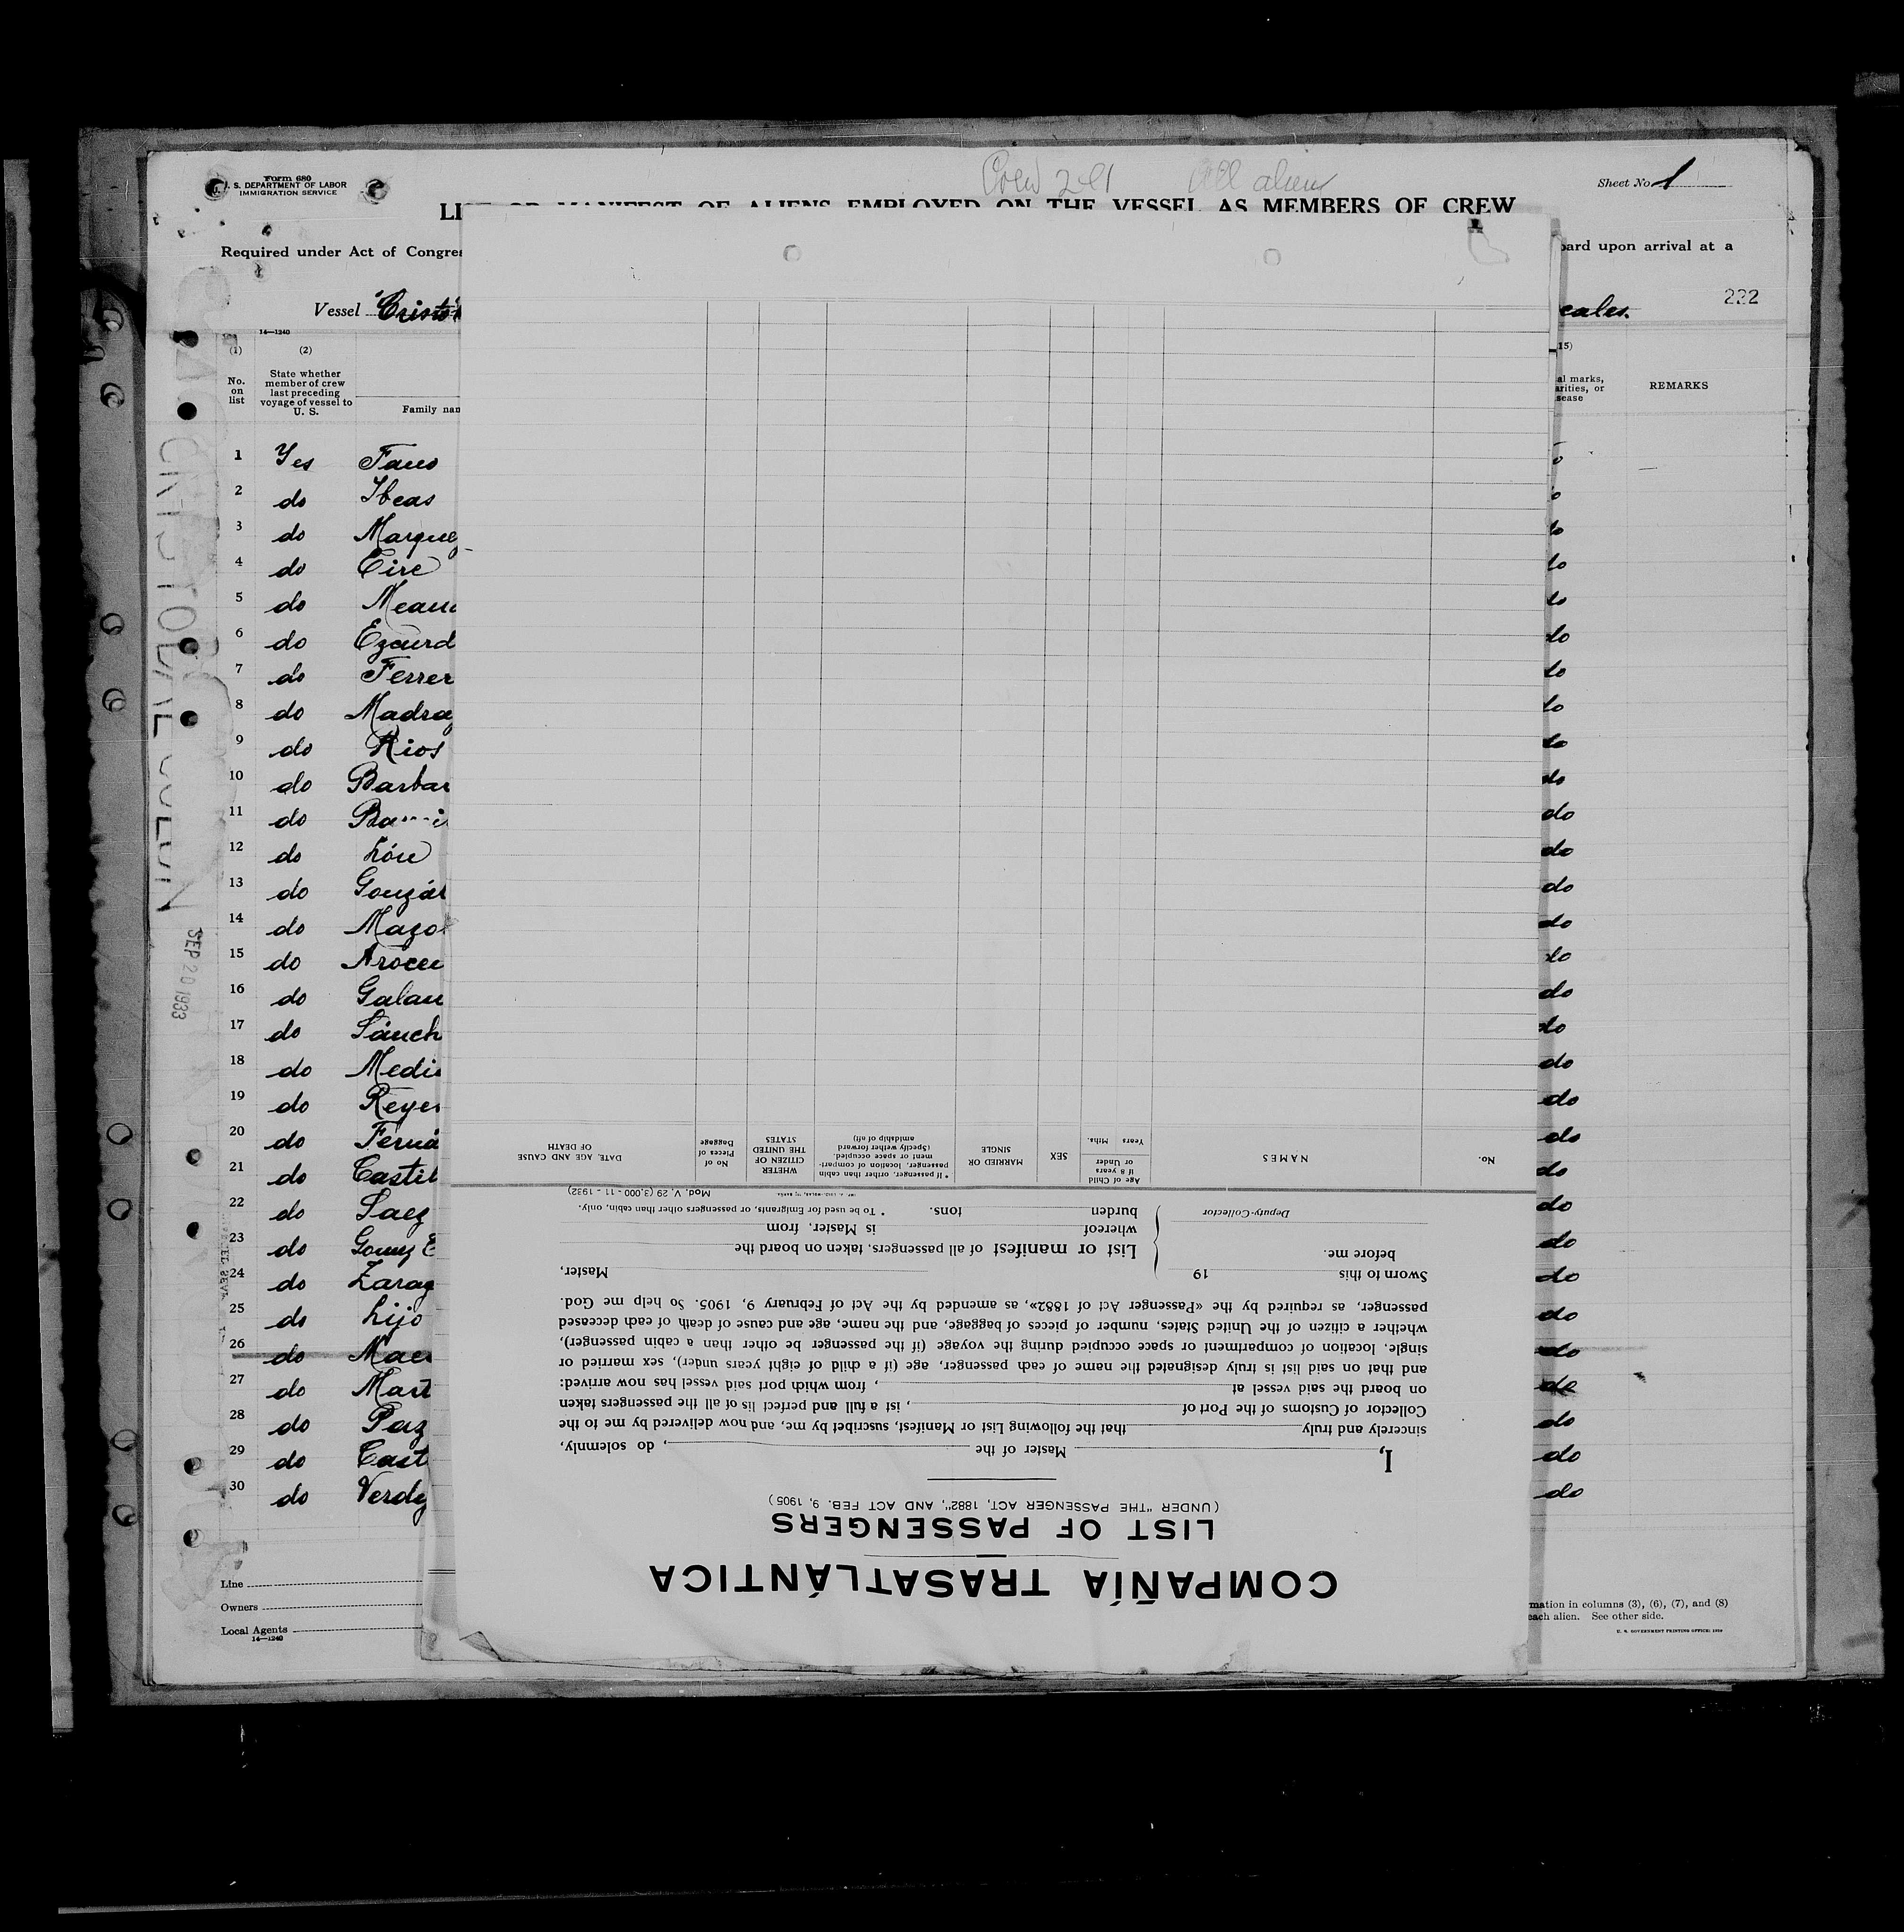 Form 680
U. S. DEPARTMENT OF LABOR
IMMIGRATION SERVICE
Crew 201 All aliens
Sheet No. 1
LIST OR MANIFEST OF ALIENS EMPLOYED ON THE VESSEL AS MEMBERS OF CREW
Required under Act of Congres
oard upon arrival at a
Vessel
cales.
222
14—1240
(1)
No.
on
list
(2)
State whether
member of crew
last preceding
voyage of vessel to
U. S.
Family nam
15)
al marks,
arities, or
sease
REMARKS
1 Yes Fano
2 do Ibeas do
3 do Marquez do
4 do Eire do
5 do do
6 do Ezcurd do
7 do Ferrer do
8 do Madra do
9 do Rios do
10 do Barbar do
11 do do
12 do do
13 do Gonzál do
14 do Mazo do
15 do Aroce do
16 do Galan do
17 do Sánch do
18 do Medi do
19 do Reyes do
20 do Ferná do
21 do Castil do
22 do Saez do
23 do Gomez E do
24 do Zarag do
25 do Lijo do
26 do Mae do
27 do Mart do
28 do Paz do
29 do Cast do
30 do Verde do
CRISTOBAL COLON
SEP 20 1933
Line
Owners
Local Agents
14—1240
mation in columns (3), (6), (7), and (8)
each alien. See other side.
U. S. GOVERNMENT PRINTING OFFICE: 1929
COMPAÑÍA TRASATLÁNTICA
LIST OF PASSENGERS
(UNDER "THE PASSENGER ACT, 1882", AND ACT FEB. 9, 1905)
I, Master of the , do solemnly,
sincerely and truly that the following List or Manifest, suscribet by me, and now delivered by me to the
Collector of Customs of the Port of , ist a full and perfect lis of all the passengers taken
on board the said vessel at , from which port said vessel has now arrived:
and that on said list is truly designated the name of each passenger, age (if a child of eight years under), sex married or
single, location of compartment or space occupied during the voyage (if the passenger be other than a cabin passenger),
whether a citizen of the United States, number of pieces of baggage, and the name, age and cause of death of each deceased
passenger, as required by the «Passenger Act of 1882», as amended by the Act of February 9, 1905. So help me God.
Sworn to this 19
before me.
Deputy-Collector
Master,
List or manifest of all passengers, taken on board the
whereof is Master, from
burden tons.
* To be used for Emigrants, or passengers other than cabin, only.
Mod. V, 29 (3,000 - 11 - 1932)
No.
NAMES
Age of Child
if 8 years
or Under
Years Mths.
SEX
MARRIED OR
SINGLE
* If passenger, orther than cabin
passenger, location of compart-
ment or space occupied.
(Specify wether forward
amidship of aft)
WHETER
CITIZEN OF
THE UNITED
STATES
No of
Pieces of
Baggage
DATE, AGE AND CAUSE
OF DEATH